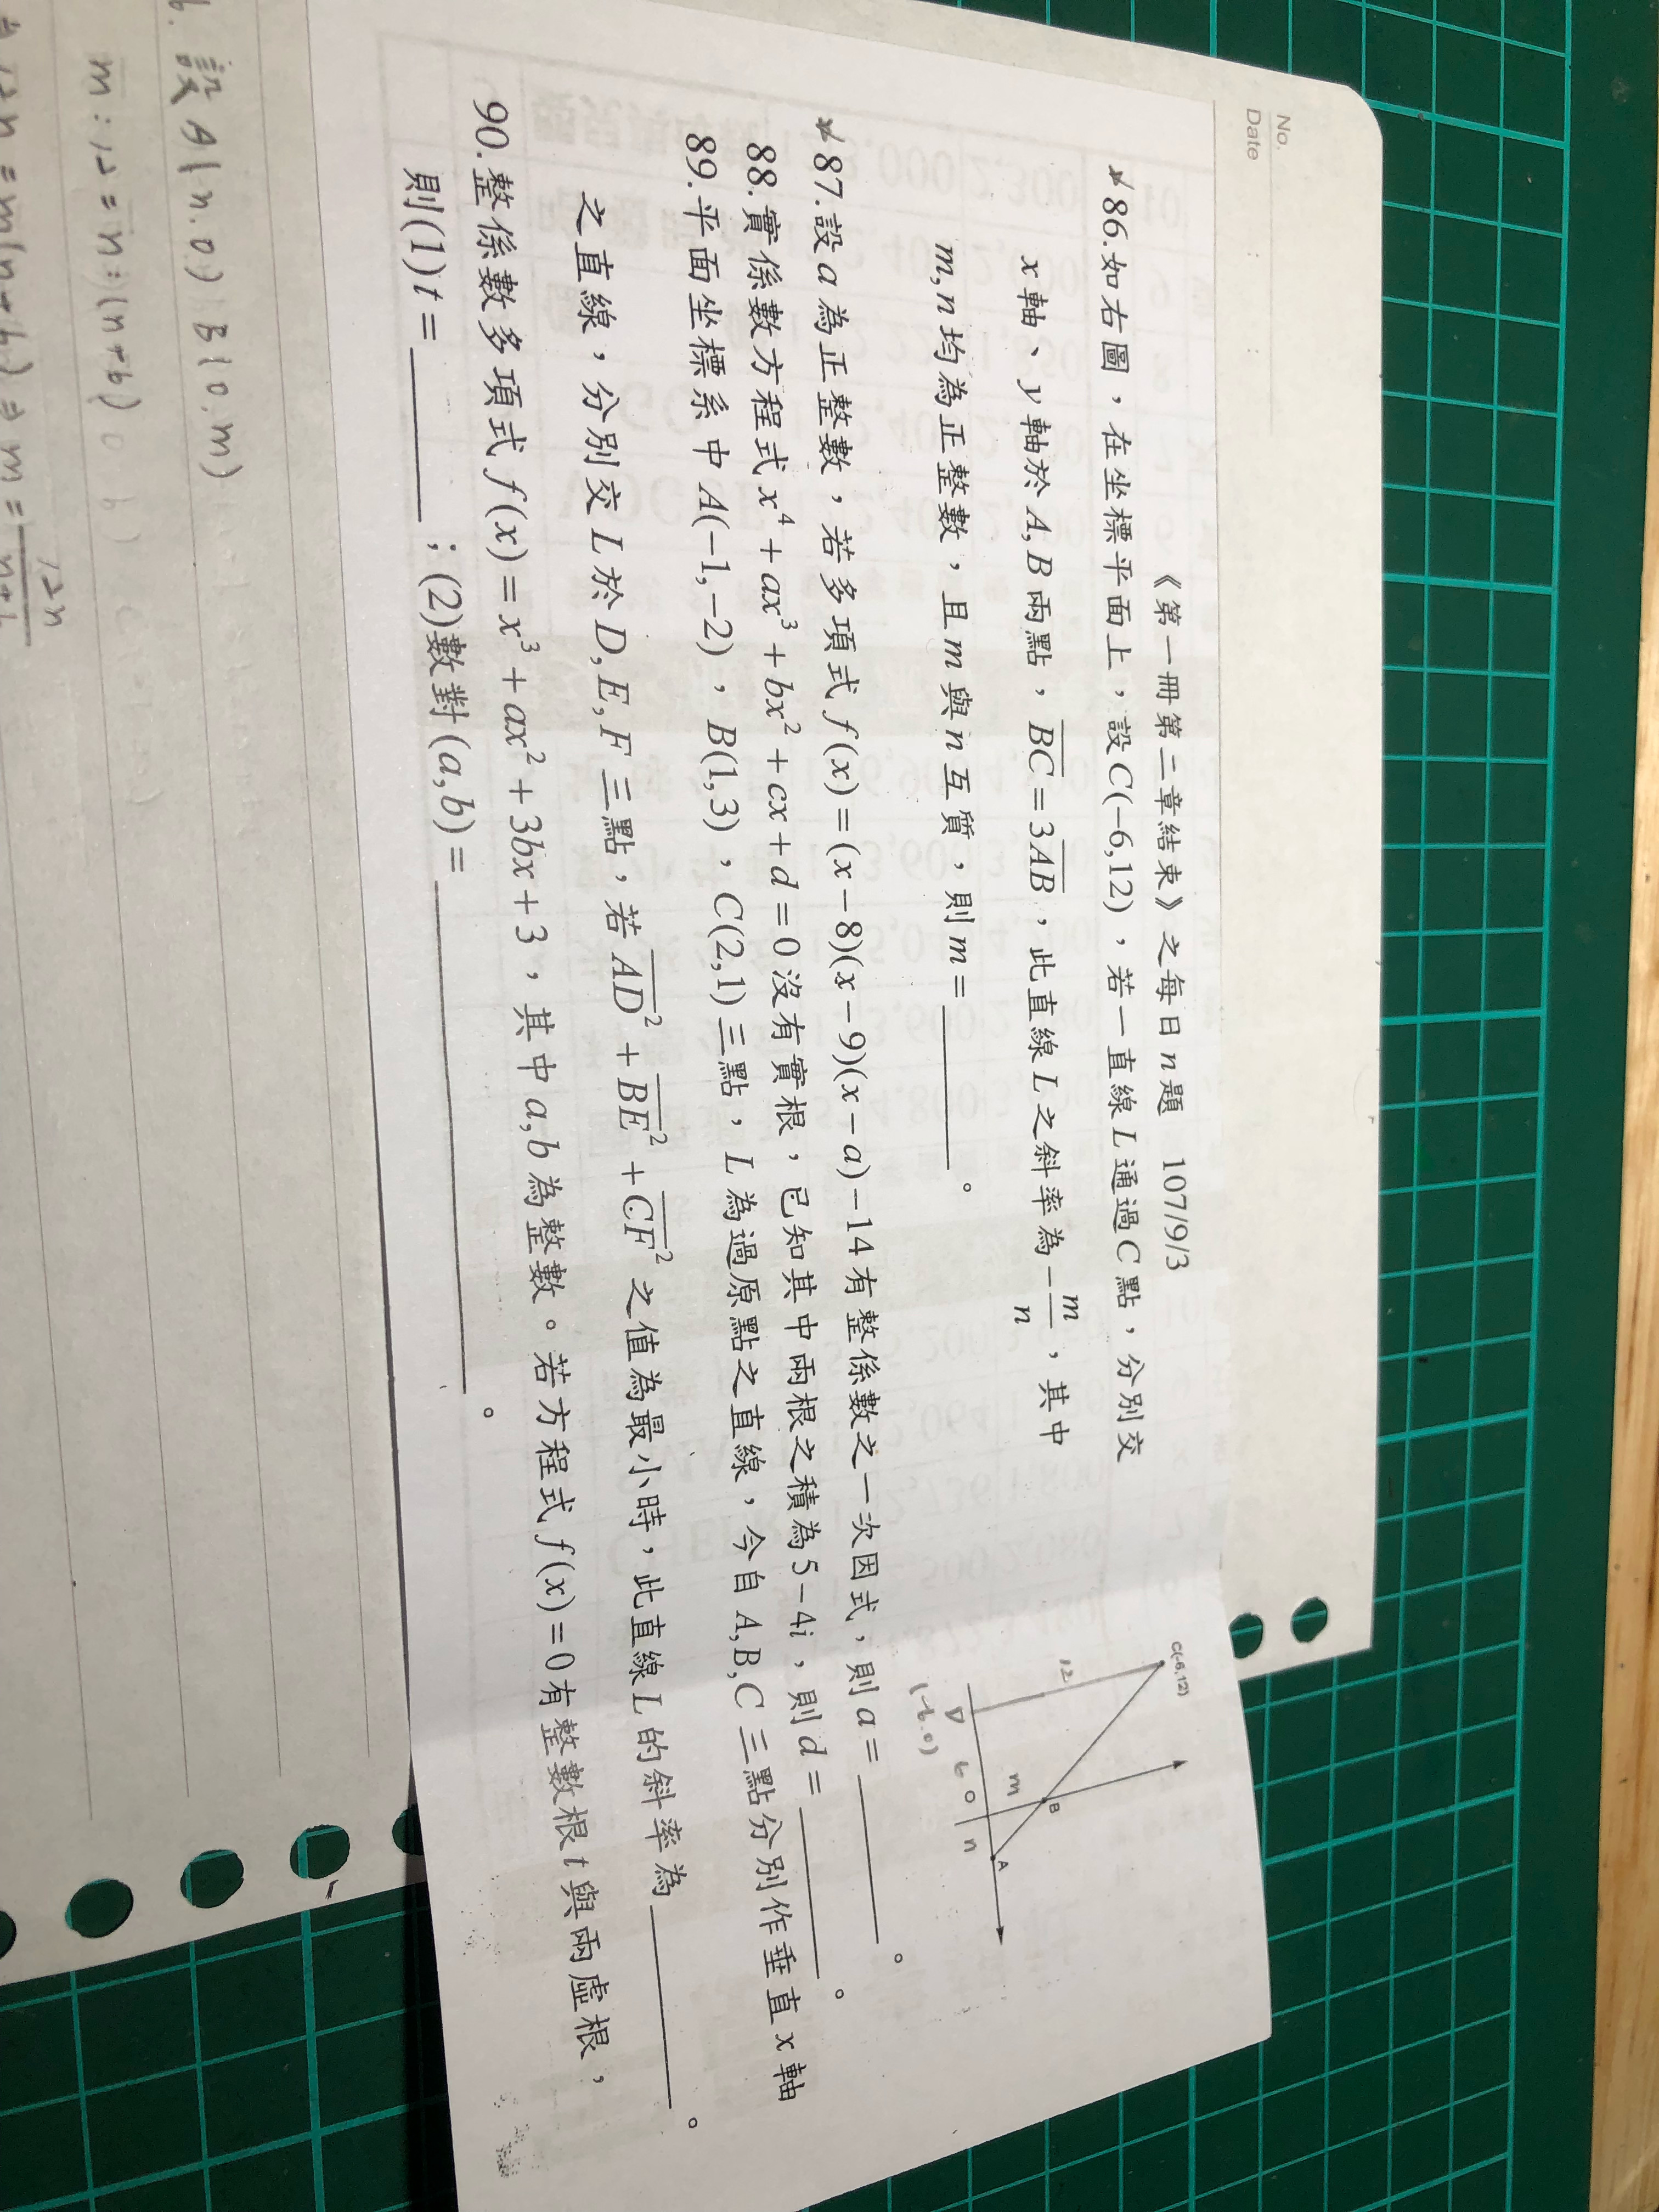 No.
Date : :
《第一冊第二章結束》之每日n題 107/9/3
86.如右圖，在坐標平面上，設C(−6,12)，若一直線L通過C點，分別交
x軸、y軸於A,B兩點，BC=3AB，此直線L之斜率為−m/n，其中
m,n均為正整數，且m與n互質，則m=______。
C(-6,12)
12
B
m
D 6 O n A
(-6.0)
87.設a為正整數，若多項式f(x)=(x−8)(x−9)(x−a)−14有整係數之一次因式，則a=______。
88.實係數方程式x⁴+ax³+bx²+cx+d=0沒有實根，已知其中兩根之積為5−4i，則d=______。
89.平面坐標系中A(−1,−2)，B(1,3)，C(2,1)三點，L為過原點之直線，今自A,B,C三點分別作垂直x軸
之直線，分別交L於D,E,F三點，若AD²+BE²+CF²之值為最小時，此直線L的斜率為______。
90.整係數多項式f(x)=x³+ax²+3bx+3，其中a,b為整數。若方程式f(x)=0有整數根t與兩虛根，
則(1)t=______；(2)數對(a,b)=______。
設 A(n.0) B(0.m)
m:12=n:(n+6)
12n=m(n+6)⇒m=12n